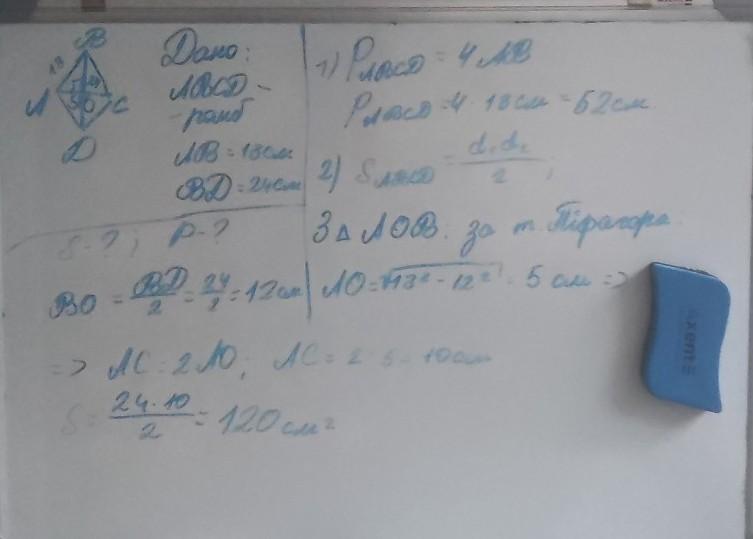 B
13
A
O
C
D
Дано:
ABCD -
- ромб
AB = 13см
BD = 24см
S - ?; P - ?
1) P_ABCD = 4 AB
P_ABCD = 4 · 13см = 52см
2) S_ABCD = d₁d₂/2;
З △ AOB: за т. Піфагора
BO = BD/2 = 24/2 = 12см
AO = √13² - 12² = 5 см =>
=> AC = 2AO; AC = 2 · 5 = 10см
S = 24 · 10/2 = 120см²
Axent